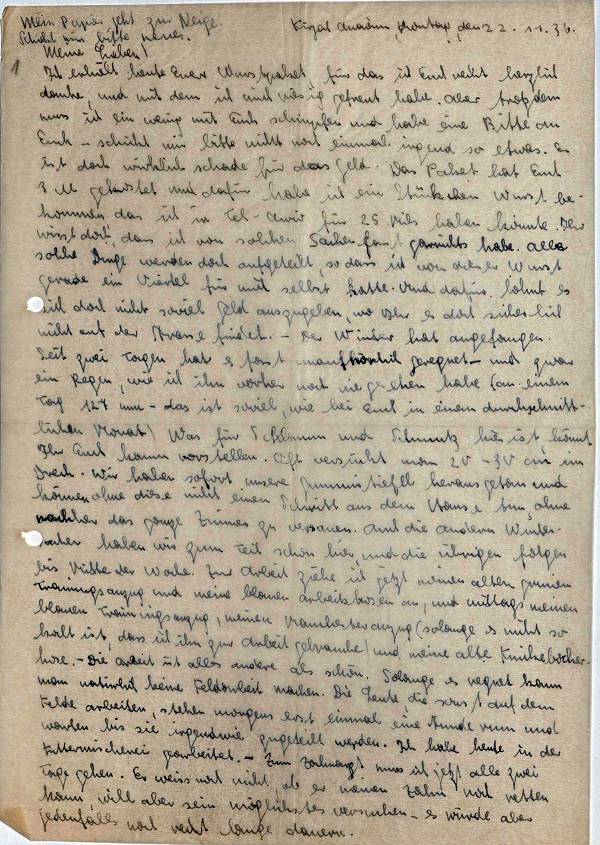 Mein Papier geht zur Neige.
Schickt mir bitte neues.
Kirjat Anavim, Montag, den 22. 11. 36.
Meine Lieben!
1
Ich erhielt heute Euer Wurstpaket, für das ich Euch recht herzlich
danke, und mit dem ich mich riesig gefreut habe. Aber trotzdem
muss ich ein wenig mit Euch schimpfen und habe eine Bitte an
Euch – schickt mir bitte nicht noch einmal irgend so etwas. Es
ist doch wirklich schade für das Geld. Das Paket hat Euch
3 M gekostet und dafür habe ich ein Stückchen Wurst be-
kommen das ich in Tel-Awiv für 25 Mils haben könnte. Ihr
wisst doch, dass ich von solchen Sachen fast garnichts habe. Alle
solche Dinge werden doch aufgeteilt, so dass ich von dieser Wurst
gerade ein Viertel für mich selbst hatte. Und dafür lohnt es
sich doch nicht soviel Geld auszugeben, wo Ihr es doch sicherlich
nicht auf der Strasse findet. – Der Winter hat angefangen.
Seit zwei Tagen hat es fast unaufhörlich geregnet – und zwar
ein Regen, wie ich ihn vorher noch nie gesehen habe (an einem
Tag 127 mm – das ist soviel, wie bei Euch in einem durchschnitt-
lichen Monat) Was für Schlamm und Schmutz hier ist, könnt
Ihr Euch kaum vorstellen. Oft versinkt man 20 – 30 cm im
Dreck. Wir haben sofort unsere Gummistiefel herausgetan und
können ohne diese nicht einen Schritt aus dem Hause tun, ohne
nachher das ganze Zimmer zu versauen. Auch die andern Winter-
sachen haben wir zum Teil schon hier, und die übrigen folgen
bis Mitte der Woche. Zur Arbeit ziehe ich jetzt meinen alten grünen
Trainingsanzug und meine blauen Arbeitshosen an, und mittags meinen
blauen Trainingsanzug, meinen Manchesteranzug (solange es nicht so
kalt ist, dass ich ihn zur Arbeit gebrauche) und meine alte Knickerbocker-
hose. – Die Arbeit ist alles andere als schön. Solange es regnet kann
man natürlich keine Feldarbeit machen. Die Leute, die sonst auf dem
Felde arbeiten, stehen morgens erst einmal eine Stunde rum und
warten bis sie irgendwie zugeteilt werden. Ich habe heute in der
Futtermischerei gearbeitet. – Zum Zahnarzt muss ich jetzt alle zwei
Tage gehen. Er weiss noch nicht, ob er meinen Zahn noch retten
kann, will aber sein möglichstes versuchen – es würde aber
jedenfalls noch recht lange dauern.